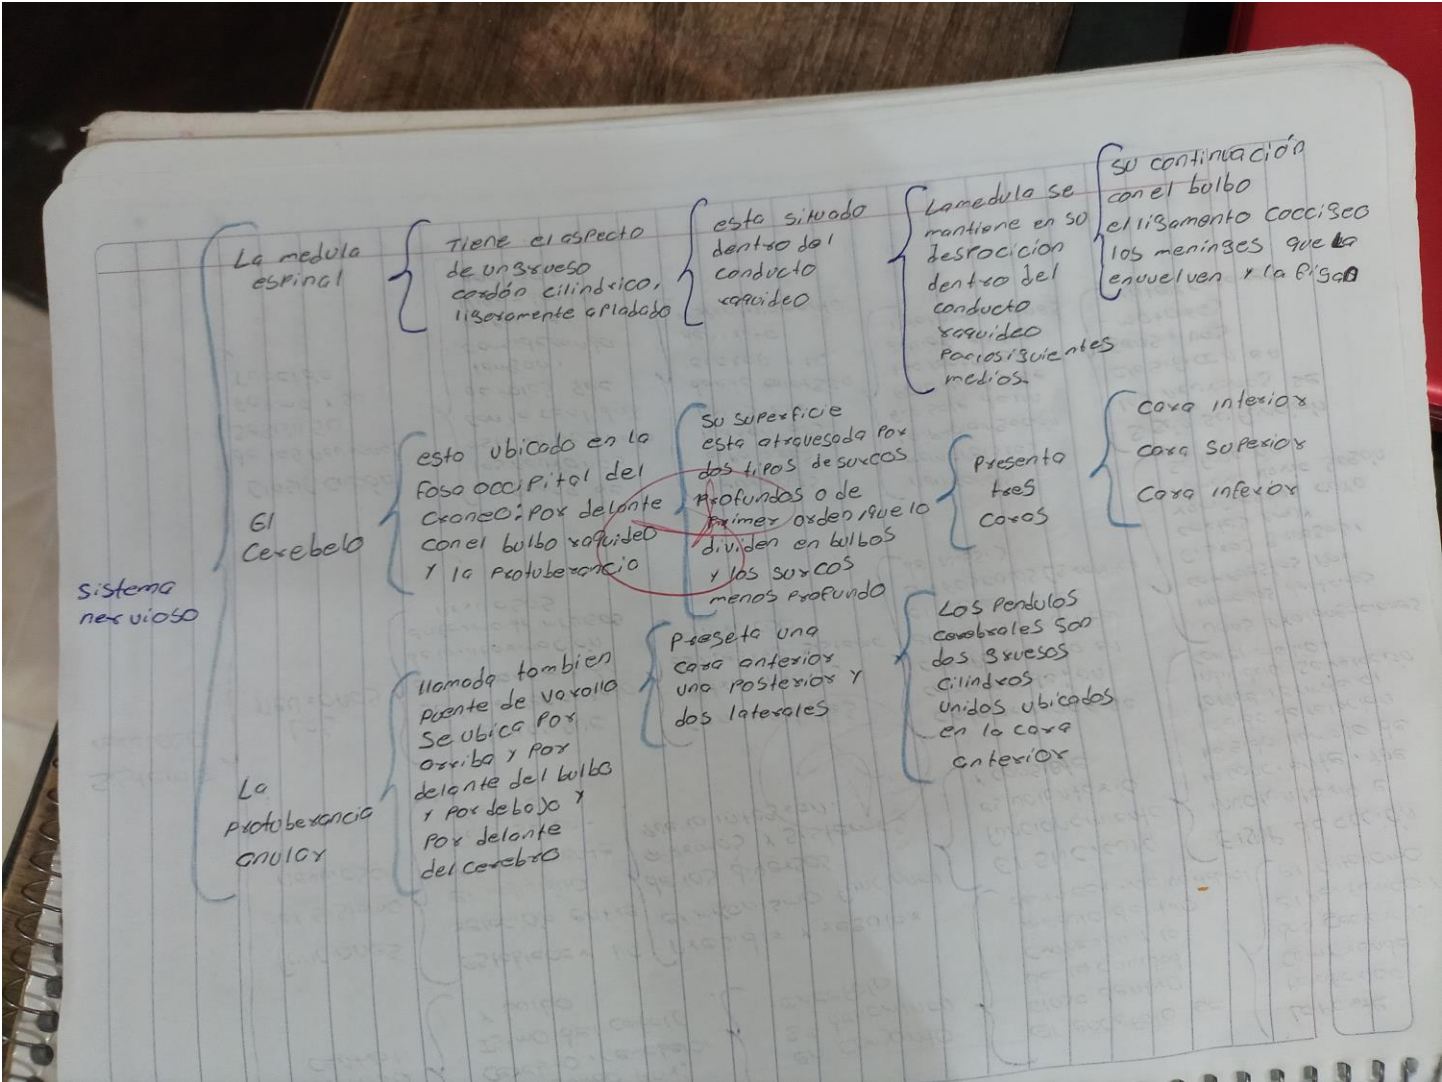 sistema
nervioso
La medula
espinal
Tiene el aspecto
de un grueso
cordón cilindrico,
ligeramente apladado
esta situado
dentro del
conducto
raquideo
La medula se
mantiene en su
desrocicion
dentro del
conducto
raquideo
por los siguientes
medios.
su continuación
con el bulbo
el ligamento coccigeo
los meninges que la
envuelven y la figan
El
cerebelo
esta ubicado en la
fosa occipital del
craneo: por delante
con el bulbo raquideo
y la protuberancia
su superficie
esta atravesada por
dos tipos de surcos
profundos o de
primer orden, que lo
dividen en bulbos
y los surcos
menos profundo
presenta
tres
caras
cara interior
cara superior
cara inferior
La
protuberancia
anular
llamada tambien
puente de varolio
se ubica por
arriba y por
delante del bulbo
y por debajo y
por delante
del cerebro
preseta una
cara anterior
una posterior y
dos laterales
Los pendulos
cerebrales son
dos gruesos
cilindros
unidos ubicados
en la cara
anterior